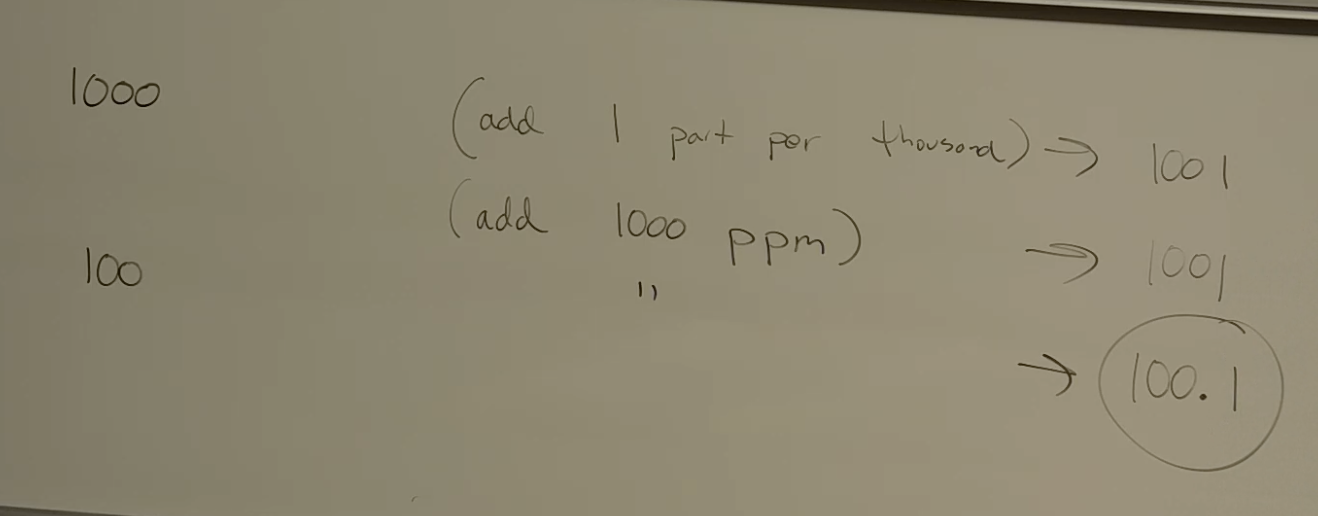 1000 (add 1 part per thousand) → 1001
(add 1000 ppm) → 1001
100 "
→ 100.1